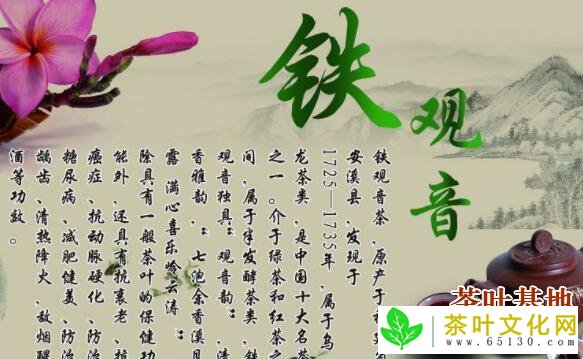 铁
观
音
铁观音茶,原产于
安溪县,发现于
1725—1735年,属于乌
龙茶类,是中国十大名茶
之一。介于绿茶和红茶之
间,属于半发酵茶类,铁
观音独具“观音韵”,清
香雅韵,“七泡余香溪月
露 满心喜乐岭云涛”
除具有一般茶叶的保健功
能外,还具有抗衰老、抗
癌症、抗动脉硬化、防治
糖尿病、减肥健美、防治
龋齿、清热降火、敌烟醒
酒等功效。
茶叶基地
茶叶文化网
www.65130.com